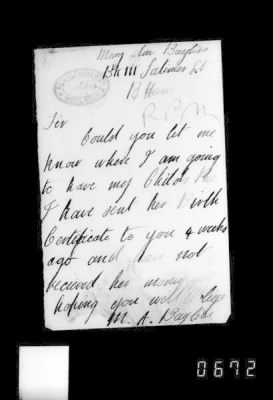 Mary Ann Bayliss
Bk 111 Latimer St
B Ham
R P M
Sir
Could you let me
know where I am going
to have my Childs
I have sent her Birth
Certificate to you 4 weeks
ago and have not
recieved her money
hoping you will
M. A. Bayliss
0672